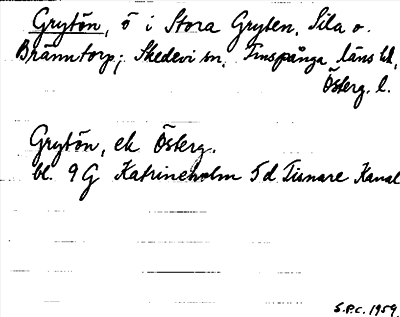 Grytön, ö i Stora Gryten, Sila o.
Bränntorp; Skedevi sn, Finspånga läns hd,
Österg. l.
Grytön, ek Österg.
bl. 9G Katrineholm 5d Tisnare Kanal
S.P.C. 1959.